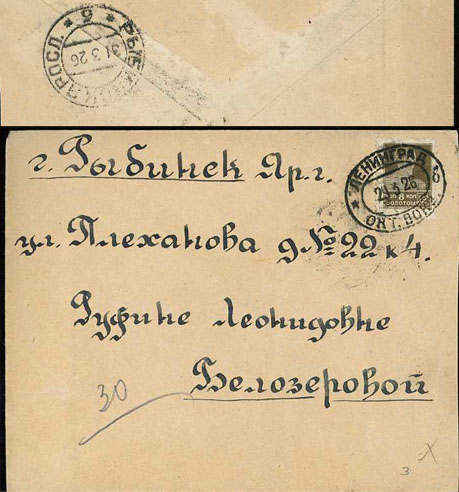 31 3 26
г. Рыбинск Яр.г.
ЛЕНИНГРАД 6
29 3 26
ОКТ. ВОКЗ.
8 КОП.
ЗОЛОТОМ
ул. Плеханова д № 22 к 4.
Руфине Леонидовне
Белозеровой
30
3
X